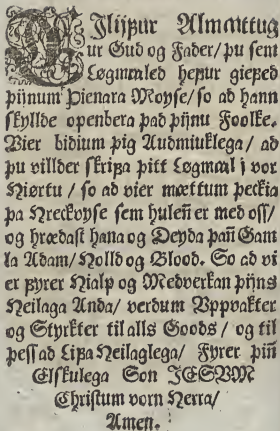 O Jlijfur Almꜳttug
ur Gud og Fader/ þu sem
Løgmꜳled hefur giefed
þijnum Þienara Moyse/ so ad hann
skyllde openbera þad þijnu Foolke.
Vier bidium þig Audmiuklega/ ad
þu villder skrifa þitt Løgmꜳl j vor
Hiørtu / so ad vier mættum þeckia
þa Hreckvyse sem hulen̄ er med oss/
og hrædast hana og Deyda þan̄ Gam
la Adam/ Holld og Blood. So ad vi
er fyrer Hialp og Medverkan þijns
Heilaga Anda/ verdum Vppvakter
og Styrkter til alls Goods / og til
þess ad Lifa Heilaglega/ Fyrer þin̄
Elskulega Son JESVM
Christum vorn Herra/
Amen.